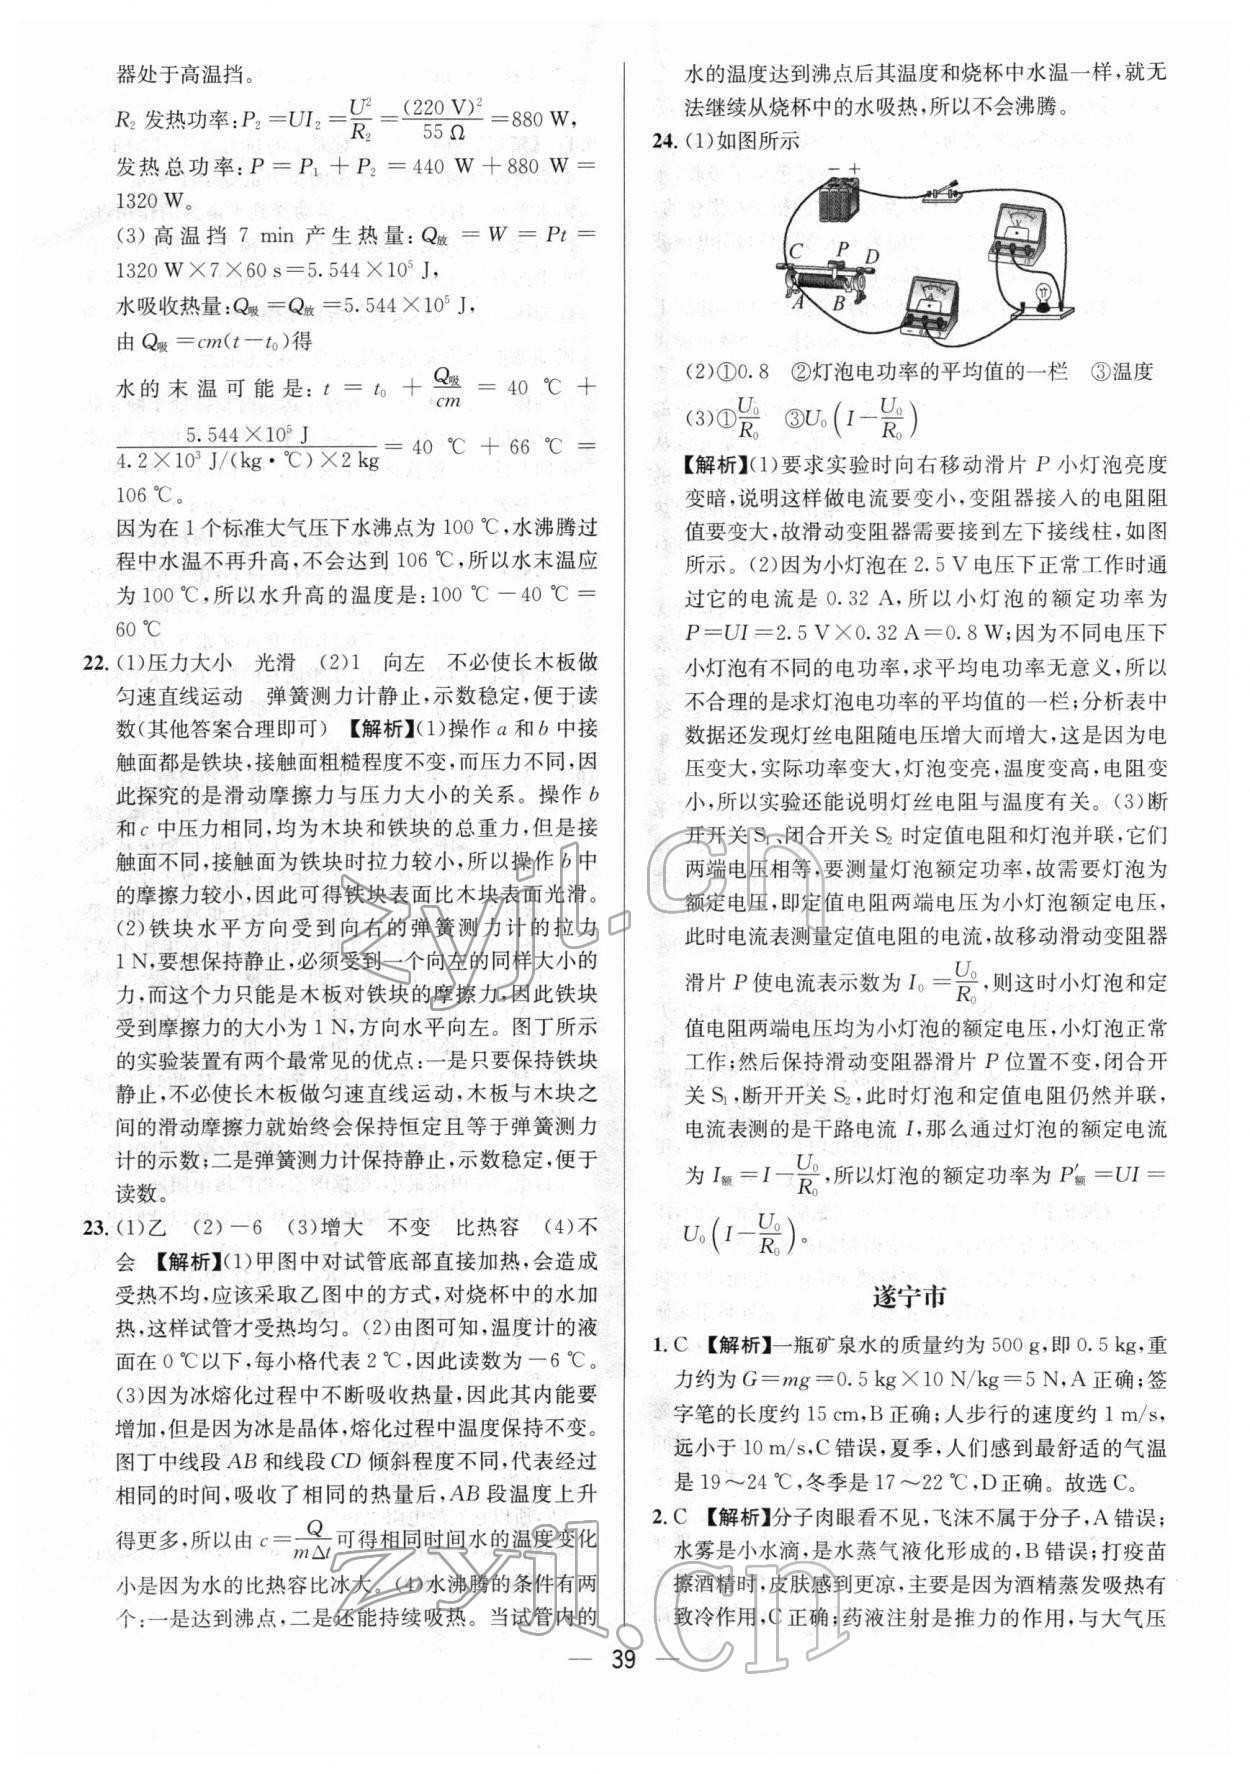 器处于高温挡。
R₂ 发热功率:P₂=UI₂=U²/R₂=(220 V)²/55 Ω=880 W,
发热总功率:P=P₁+P₂=440 W+880 W=
1320 W。
(3)高温挡 7 min 产生热量:Q放=W=Pt=
1320 W×7×60 s=5.544×10⁵ J,
水吸收热量:Q吸=Q放=5.544×10⁵ J,
由 Q吸=cm(t-t₀)得
水的末温可能是:t=t₀+Q吸/cm=40 ℃+
5.544×10⁵ J/4.2×10³ J/(kg·℃)×2 kg=40 ℃+66 ℃=
106 ℃。
因为在 1 个标准大气压下水沸点为 100 ℃,水沸腾过
程中水温不再升高,不会达到 106 ℃,所以水末温应
为 100 ℃,所以水升高的温度是:100 ℃-40 ℃=
60 ℃
22. (1)压力大小 光滑 (2)1 向左 不必使长木板做
匀速直线运动 弹簧测力计静止,示数稳定,便于读
数(其他答案合理即可) 【解析】(1)操作 a 和 b 中接
触面都是铁块,接触面粗糙程度不变,而压力不同,因
此探究的是滑动摩擦力与压力大小的关系。操作 b
和 c 中压力相同,均为木块和铁块的总重力,但是接
触面不同,接触面为铁块时拉力较小,所以操作 b 中
的摩擦力较小,因此可得铁块表面比木块表面光滑。
(2)铁块水平方向受到向右的弹簧测力计的拉力
1 N,要想保持静止,必须受到一个向左的同样大小的
力,而这个力只能是木板对铁块的摩擦力,因此铁块
受到摩擦力的大小为 1 N,方向水平向左。图丁所示
的实验装置有两个最常见的优点:一是只要保持铁块
静止,不必使长木板做匀速直线运动,木板与木块之
间的滑动摩擦力就始终会保持恒定且等于弹簧测力
计的示数;二是弹簧测力计保持静止,示数稳定,便于
读数。
23. (1)乙 (2)-6 (3)增大 不变 比热容 (4)不
会 【解析】(1)甲图中对试管底部直接加热,会造成
受热不均,应该采取乙图中的方式,对烧杯中的水加
热,这样试管才受热均匀。(2)由图可知,温度计的液
面在 0 ℃以下,每小格代表 2 ℃,因此读数为-6 ℃。
(3)因为冰熔化过程中不断吸收热量,因此其内能要
增加,但是因为冰是晶体,熔化过程中温度保持不变。
图丁中线段 AB 和线段 CD 倾斜程度不同,代表经过
相同的时间,吸收了相同的热量后,AB 段温度上升
得更多,所以由 c=Q/mΔt可得相同时间水的温度变化
小是因为水的比热容比冰大。(4)水沸腾的条件有两
个:一是达到沸点,二是还能持续吸热。当试管内的
水的温度达到沸点后其温度和烧杯中水温一样,就无
法继续从烧杯中的水吸热,所以不会沸腾。
24. (1)如图所示
- +
C P D
A B
A
(2)①0.8 ②灯泡电功率的平均值的一栏 ③温度
(3)①U₀/R₀ ③U₀(I-U₀/R₀)
【解析】(1)要求实验时向右移动滑片 P 小灯泡亮度
变暗,说明这样做电流要变小,变阻器接入的电阻阻
值要变大,故滑动变阻器需要接到左下接线柱,如图
所示。(2)因为小灯泡在 2.5 V 电压下正常工作时通
过它的电流是 0.32 A,所以小灯泡的额定功率为
P=UI=2.5 V×0.32 A=0.8 W;因为不同电压下
小灯泡有不同的电功率,求平均电功率无意义,所以
不合理的是求灯泡电功率的平均值的一栏;分析表中
数据还发现灯丝电阻随电压增大而增大,这是因为电
压变大,实际功率变大,灯泡变亮,温度变高,电阻变
小,所以实验还能说明灯丝电阻与温度有关。(3)断
开开关 S₁、闭合开关 S₂ 时定值电阻和灯泡并联,它们
两端电压相等,要测量灯泡额定功率,故需要灯泡为
额定电压,即定值电阻两端电压为小灯泡额定电压,
此时电流表测量定值电阻的电流,故移动滑动变阻器
滑片 P 使电流表示数为 I₀=U₀/R₀,则这时小灯泡和定
值电阻两端电压均为小灯泡的额定电压,小灯泡正常
工作;然后保持滑动变阻器滑片 P 位置不变,闭合开
关 S₁,断开开关 S₂,此时灯泡和定值电阻仍然并联,
电流表测的是干路电流 I,那么通过灯泡的额定电流
为 I额=I-U₀/R₀,所以灯泡的额定功率为 P′额=UI=
U₀(I-U₀/R₀)。
遂宁市
1. C 【解析】一瓶矿泉水的质量约为 500 g,即 0.5 kg,重
力约为 G=mg=0.5 kg×10 N/kg=5 N,A 正确;签
字笔的长度约 15 cm,B 正确;人步行的速度约 1 m/s,
远小于 10 m/s,C 错误,夏季,人们感到最舒适的气温
是 19~24 ℃,冬季是 17~22 ℃,D 正确。故选 C。
2. C 【解析】分子肉眼看不见,飞沫不属于分子,A 错误;
水雾是小水滴,是水蒸气液化形成的,B 错误;打疫苗
擦酒精时,皮肤感到更凉,主要是因为酒精蒸发吸热有
致冷作用,C 正确;药液注射是推力的作用,与大气压
39
zyjl.cn
zyjl.cn